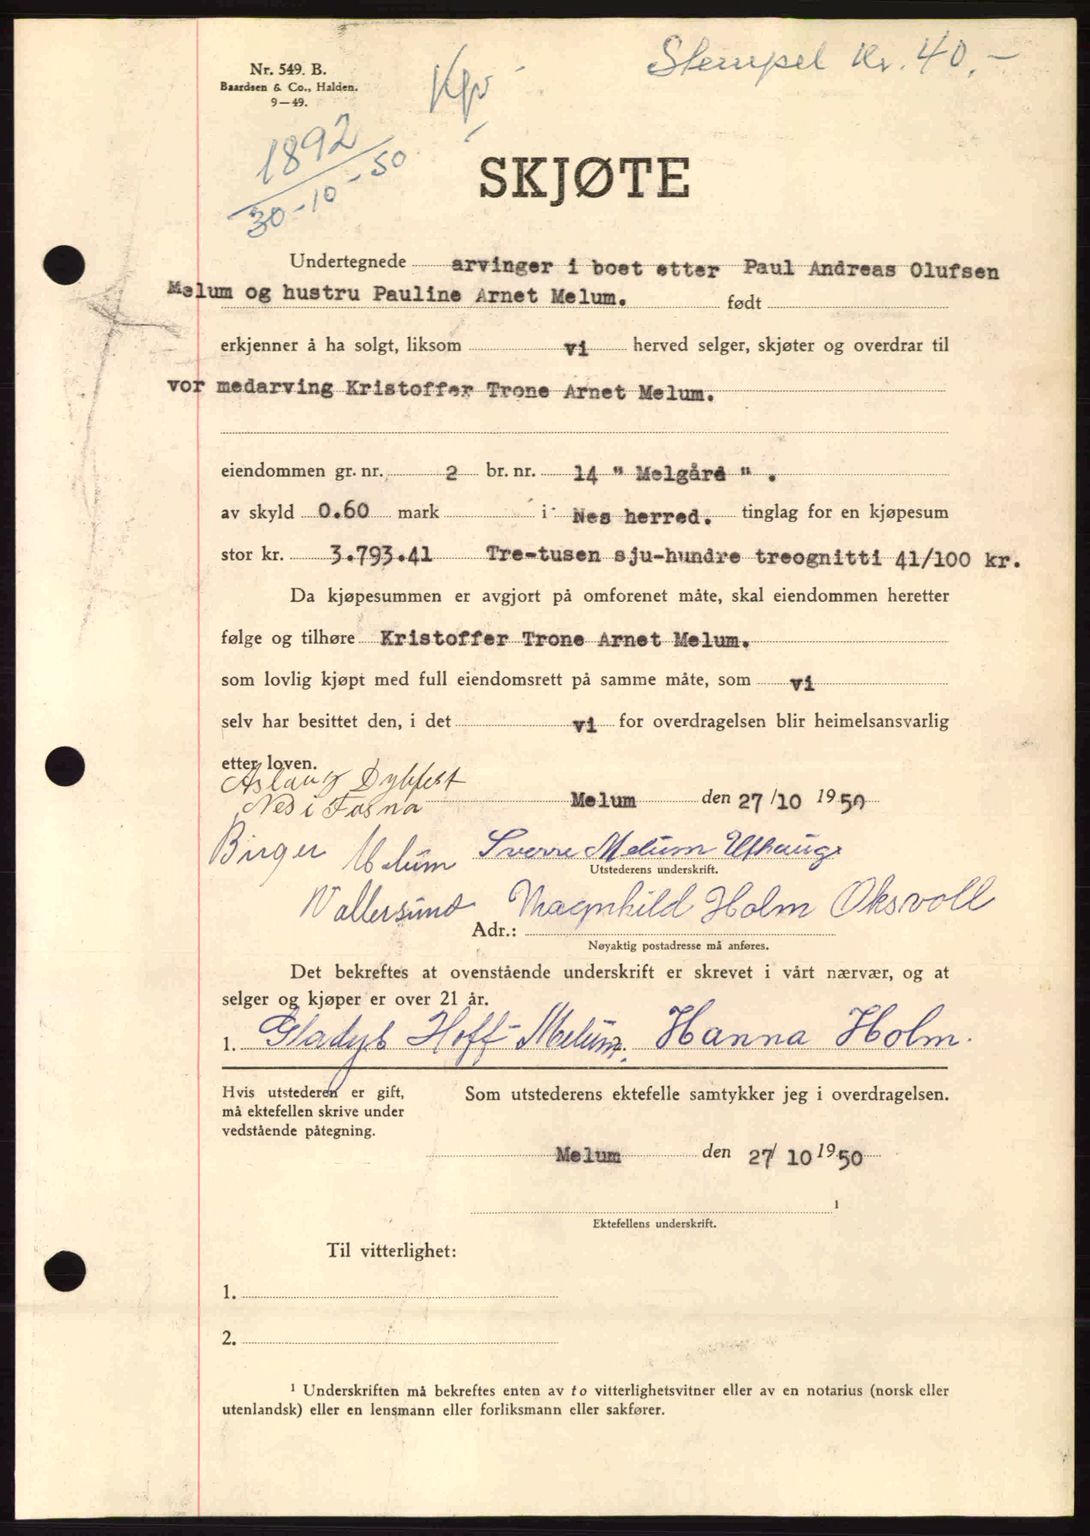 Nr. 549. B.
Baardsen & Co., Halden.
9—49.
Stempel Kr. 40.-
1892
30-10-50
SKJØTE
Undertegnede arvinger i boet etter Paul Andreas Olufsen
Melum og hustru Pauline Arnet Melum. født
erkjenner å ha solgt, liksom vi herved selger, skjøter og overdrar til
vor medarving Kristoffer Trone Arnet Melum.
eiendommen gr. nr. 2 br. nr. 14 " Melgård " .
av skyld 0.60 mark i Nes herred. tinglag for en kjøpesum
stor kr. 3.793.41 Tre-tusen sju-hundre treognitti 41/100 kr.
Da kjøpesummen er avgjort på omforenet måte, skal eiendommen heretter
følge og tilhøre Kristoffer Trone Arnet Melum.
som lovlig kjøpt med full eiendomsrett på samme måte, som vi
selv har besittet den, i det vi for overdragelsen blir heimelsansvarlig
etter loven.
Aslaug Dybfest
Nes i Fosna Melum den 27/10 1950
Birger Melum Sverre Melum Uthaug
Utstederens underskrift.
Vallersund Magnhild Holm Oksvoll
Adr.:
Nøyaktig postadresse må anføres.
Det bekreftes at ovenstående underskrift er skrevet i vårt nærvær, og at
selger og kjøper er over 21 år.
1. Gladys Hoff-Melum. 2. Hanna Holm.
Hvis utstederen er gift, Som utstederens ektefelle samtykker jeg i overdragelsen.
må ektefellen skrive under
vedstående påtegning.
Melum den 27/ 10 1950
1
Ektefellens underskrift.
Til vitterlighet:
1.
2.
1 Underskriften må bekreftes enten av to vitterlighetsvitner eller av en notarius (norsk eller
utenlandsk) eller en lensmann eller forliksmann eller sakfører.